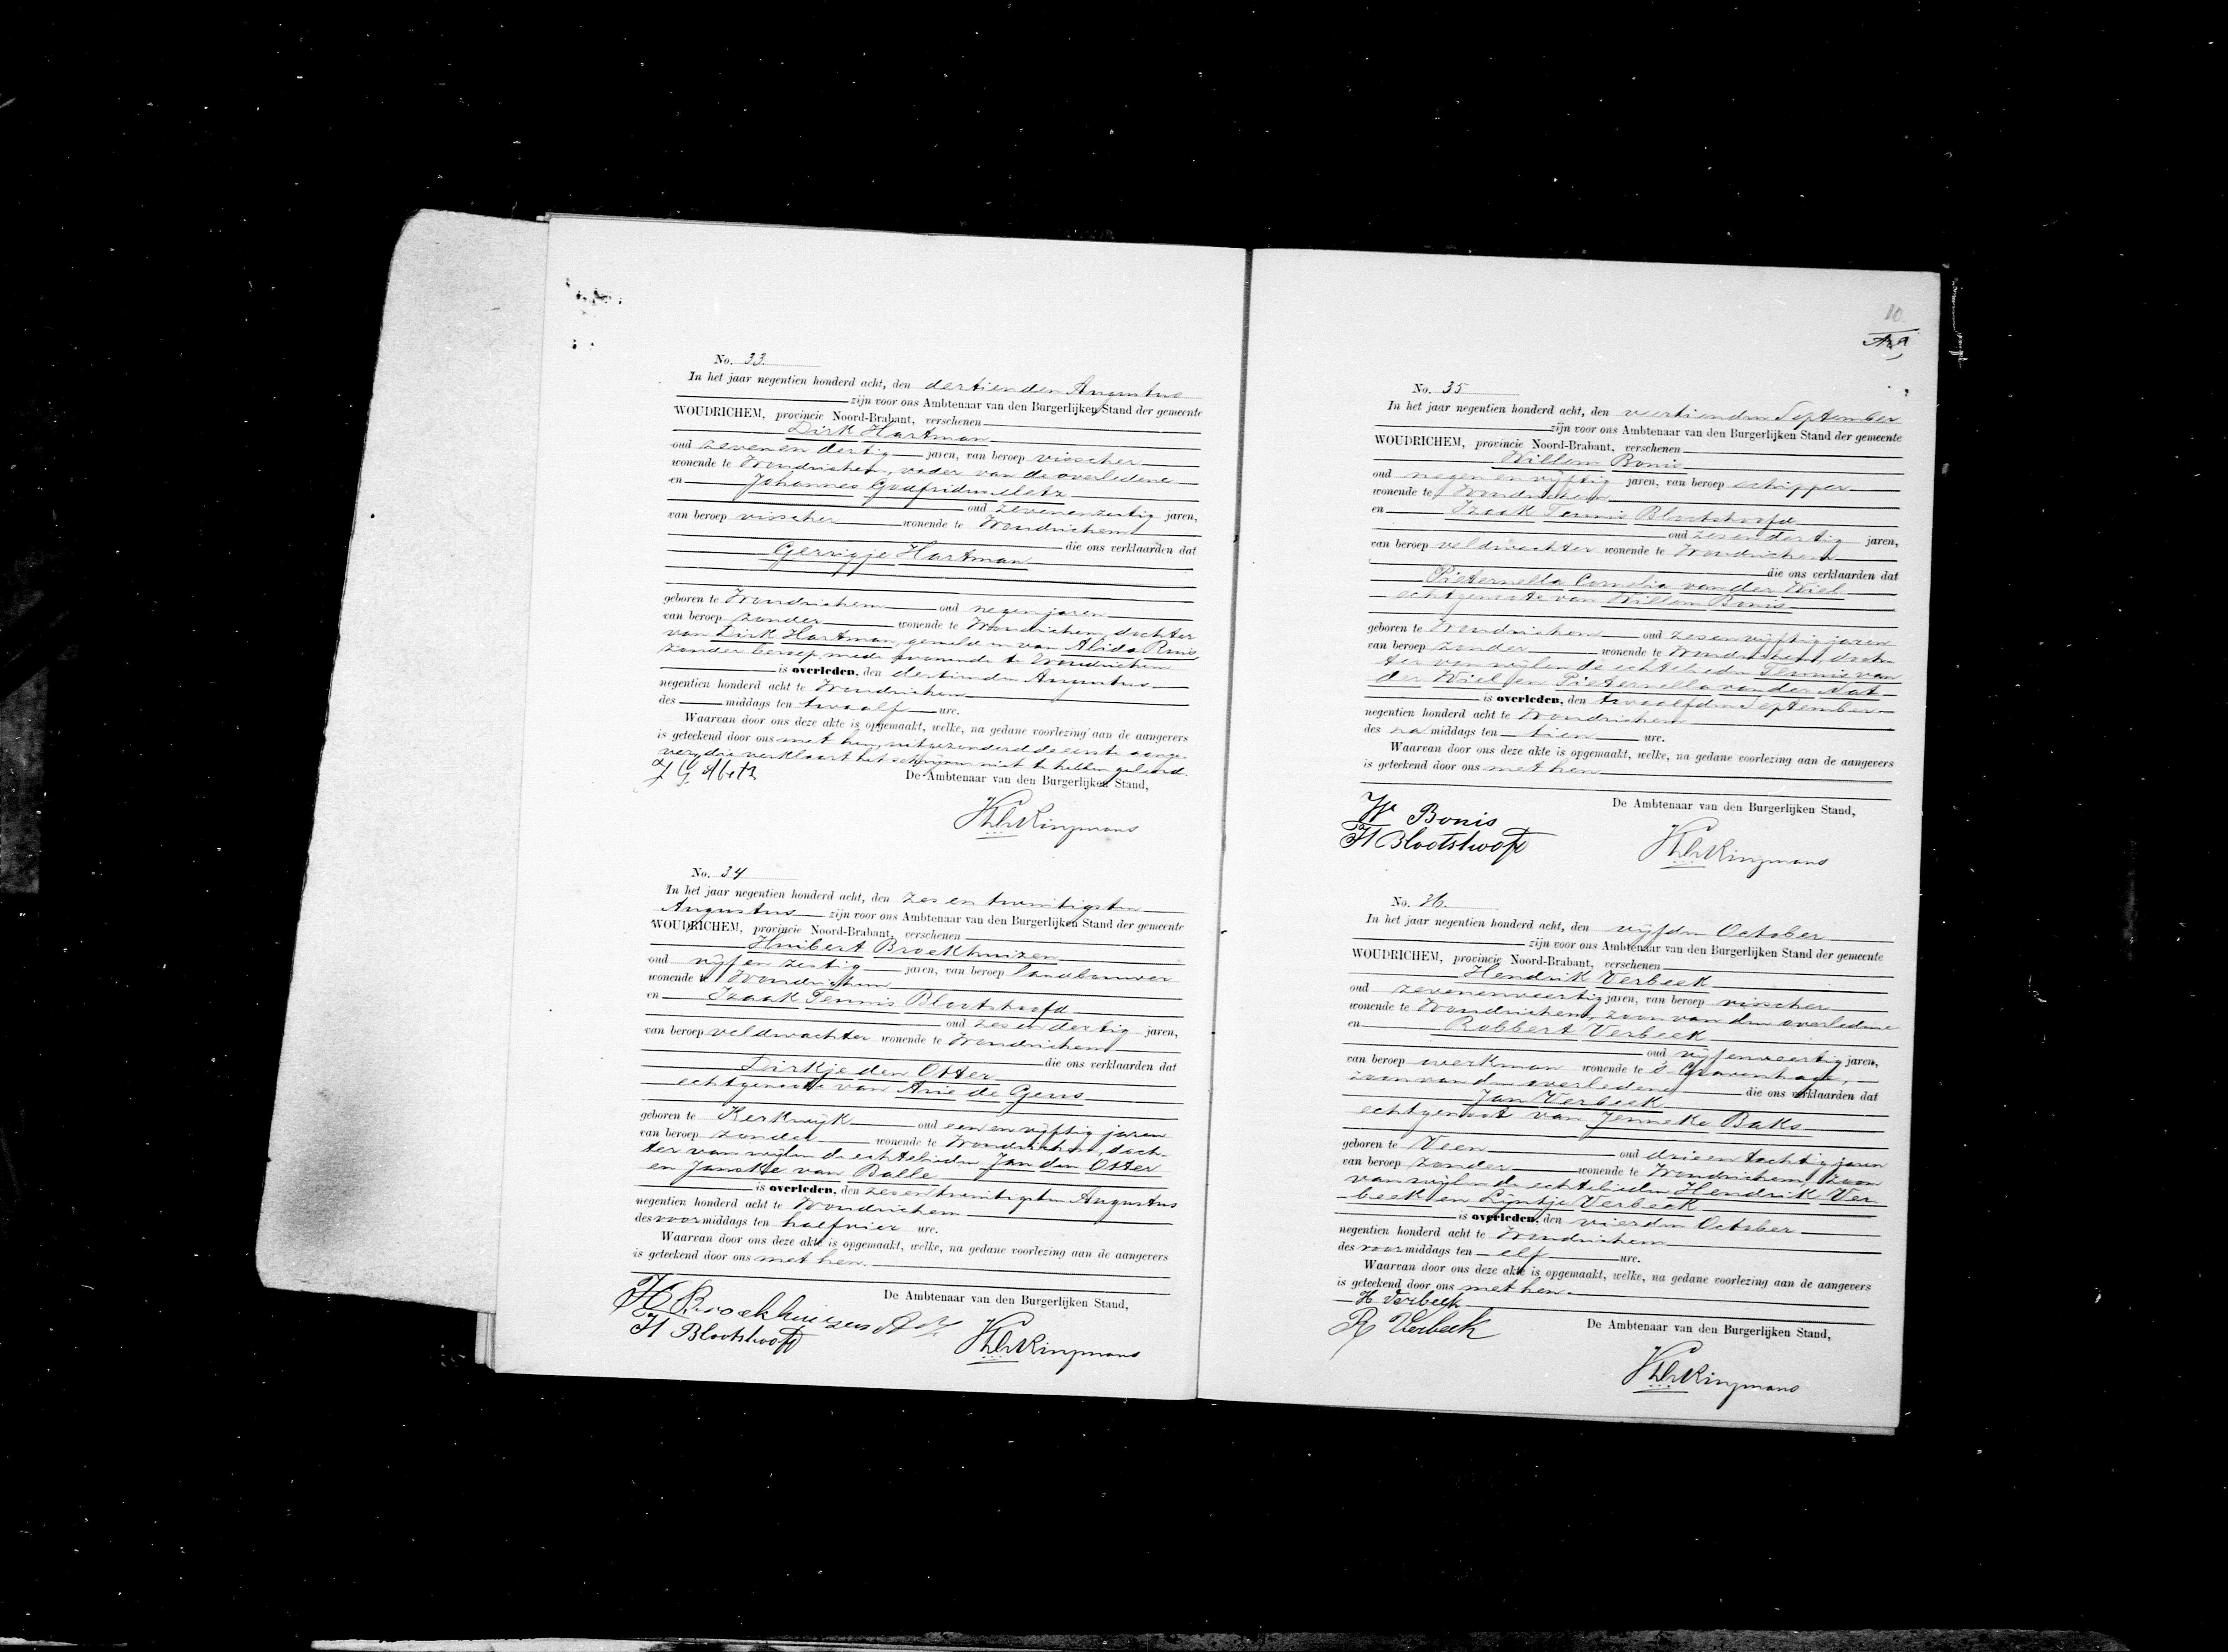 No. 33.
In het jaar negentien honderd acht, den dertienden Augustus
zijn voor ons Ambtenaar van den Burgerlijken Stand der gemeente
WOUDRICHEM, provincie Noord-Brabant, verschenen
Dirk Hartman
oud zevenendertig jaren, van beroep visscher
wonende te Woudrichem, vader van de overledene
en Johannes Godfridus Metz
oud zevenenzestig jaren,
van beroep visscher wonende te Woudrichem
die ons verklaarden dat
Gerrigje Hartman
geboren te Woudrichem oud negen jaren
van beroep zonder wonende te Woudrichem, dochter
van Dirk Hartman, gemeld en van Alida Ruis
zonder beroep, mede wonende te Woudrichem
is overleden, den dertienden Augustus
negentien honderd acht te Woudrichem
des middags ten twaalf ure.
Waarvan door ons deze akte is opgemaakt, welke, na gedane voorlezing aan de aangevers
is geteekend door ons met hen, uitgezonderd de eerste aange-
ver, die verklaart het schrijven niet te hebben geleerd.
J G Metz
De Ambtenaar van den Burgerlijken Stand,
No. 34
In het jaar negentien honderd acht, den zes en twintigsten
Augustus zijn voor ons Ambtenaar van den Burgerlijken Stand der gemeente
WOUDRICHEM, provincie Noord-Brabant, verschenen
Huibert Broekhuizen
oud vijf en zestig jaren, van beroep landbouwer
wonende te Woudrichem
en Izaak Teunis Blootshoofd
oud zesendertig jaren,
van beroep veldwachter wonende te Woudrichem
die ons verklaarden dat
Dirkje den Otter
echtgenoote van Arie de Geus
geboren te Kerkwijk oud een en vijftig jaren
van beroep zonder wonende te Woudrichem, doch-
ter van wijlen de echtelieden Jan den Otter
en Janske van Balle
is overleden, den zesentwintigsten Augustus
negentien honderd acht te Woudrichem
des voormiddags ten half vier ure.
Waarvan door ons deze akte is opgemaakt, welke, na gedane voorlezing aan de aangevers
is geteekend door ons met hen.
De Ambtenaar van den Burgerlijken Stand,
H Broekhuizen
IT Blootshoofd
10
No. 35
In het jaar negentien honderd acht, den veertienden September
zijn voor ons Ambtenaar van den Burgerlijken Stand der gemeente
WOUDRICHEM, provincie Noord-Brabant, verschenen
Willem Bonis
oud negen en vijftig jaren, van beroep schipper
wonende te Woudrichem
en Izaak Teunis Blootshoofd
oud zesendertig jaren,
van beroep veldwachter wonende te Woudrichem
die ons verklaarden dat
Pieternella Cornelia van der Wiel
echtgenoote van Willem Bonis
geboren te Woudrichem oud zesenvijftig jaren
van beroep zonder wonende te Woudrichem, doch-
ter van wijlen de echtelieden Teunis van
der Wiel en Pieternella van der Nat
is overleden, den twaalfden September
negentien honderd acht te Woudrichem
des namiddags ten tien ure.
Waarvan door ons deze akte is opgemaakt, welke, na gedane voorlezing aan de aangevers
is geteekend door ons met hen
De Ambtenaar van den Burgerlijken Stand,
W Bonis
IT Blootshoofd
No. 36.
In het jaar negentien honderd acht, den vijfden October
zijn voor ons Ambtenaar van den Burgerlijken Stand der gemeente
WOUDRICHEM, provincie Noord-Brabant, verschenen
Hendrik Verbeek
oud zevenenveertig jaren, van beroep visscher
wonende te Woudrichem, zoon van den overledene
en Robbert Verbeek
oud vijfenveertig jaren,
van beroep werkman wonende te 's Gravenhage,
zoon van den overledene die ons verklaarden dat
Jan Verbeek
echtgenoot van Jenneke Baks
geboren te Veen oud drie en tachtig jaren
van beroep zonder wonende te Woudrichem, zoon
van wijlen de echtelieden Hendrik Ver-
beek en Lijntje Verbeek
is overleden, den vierden October
negentien honderd acht te Woudrichem
des voormiddags ten elf ure.
Waarvan door ons deze akte is opgemaakt, welke, na gedane voorlezing aan de aangevers
is geteekend door ons met hen.
H Verbeek
R Verbeek
De Ambtenaar van den Burgerlijken Stand,